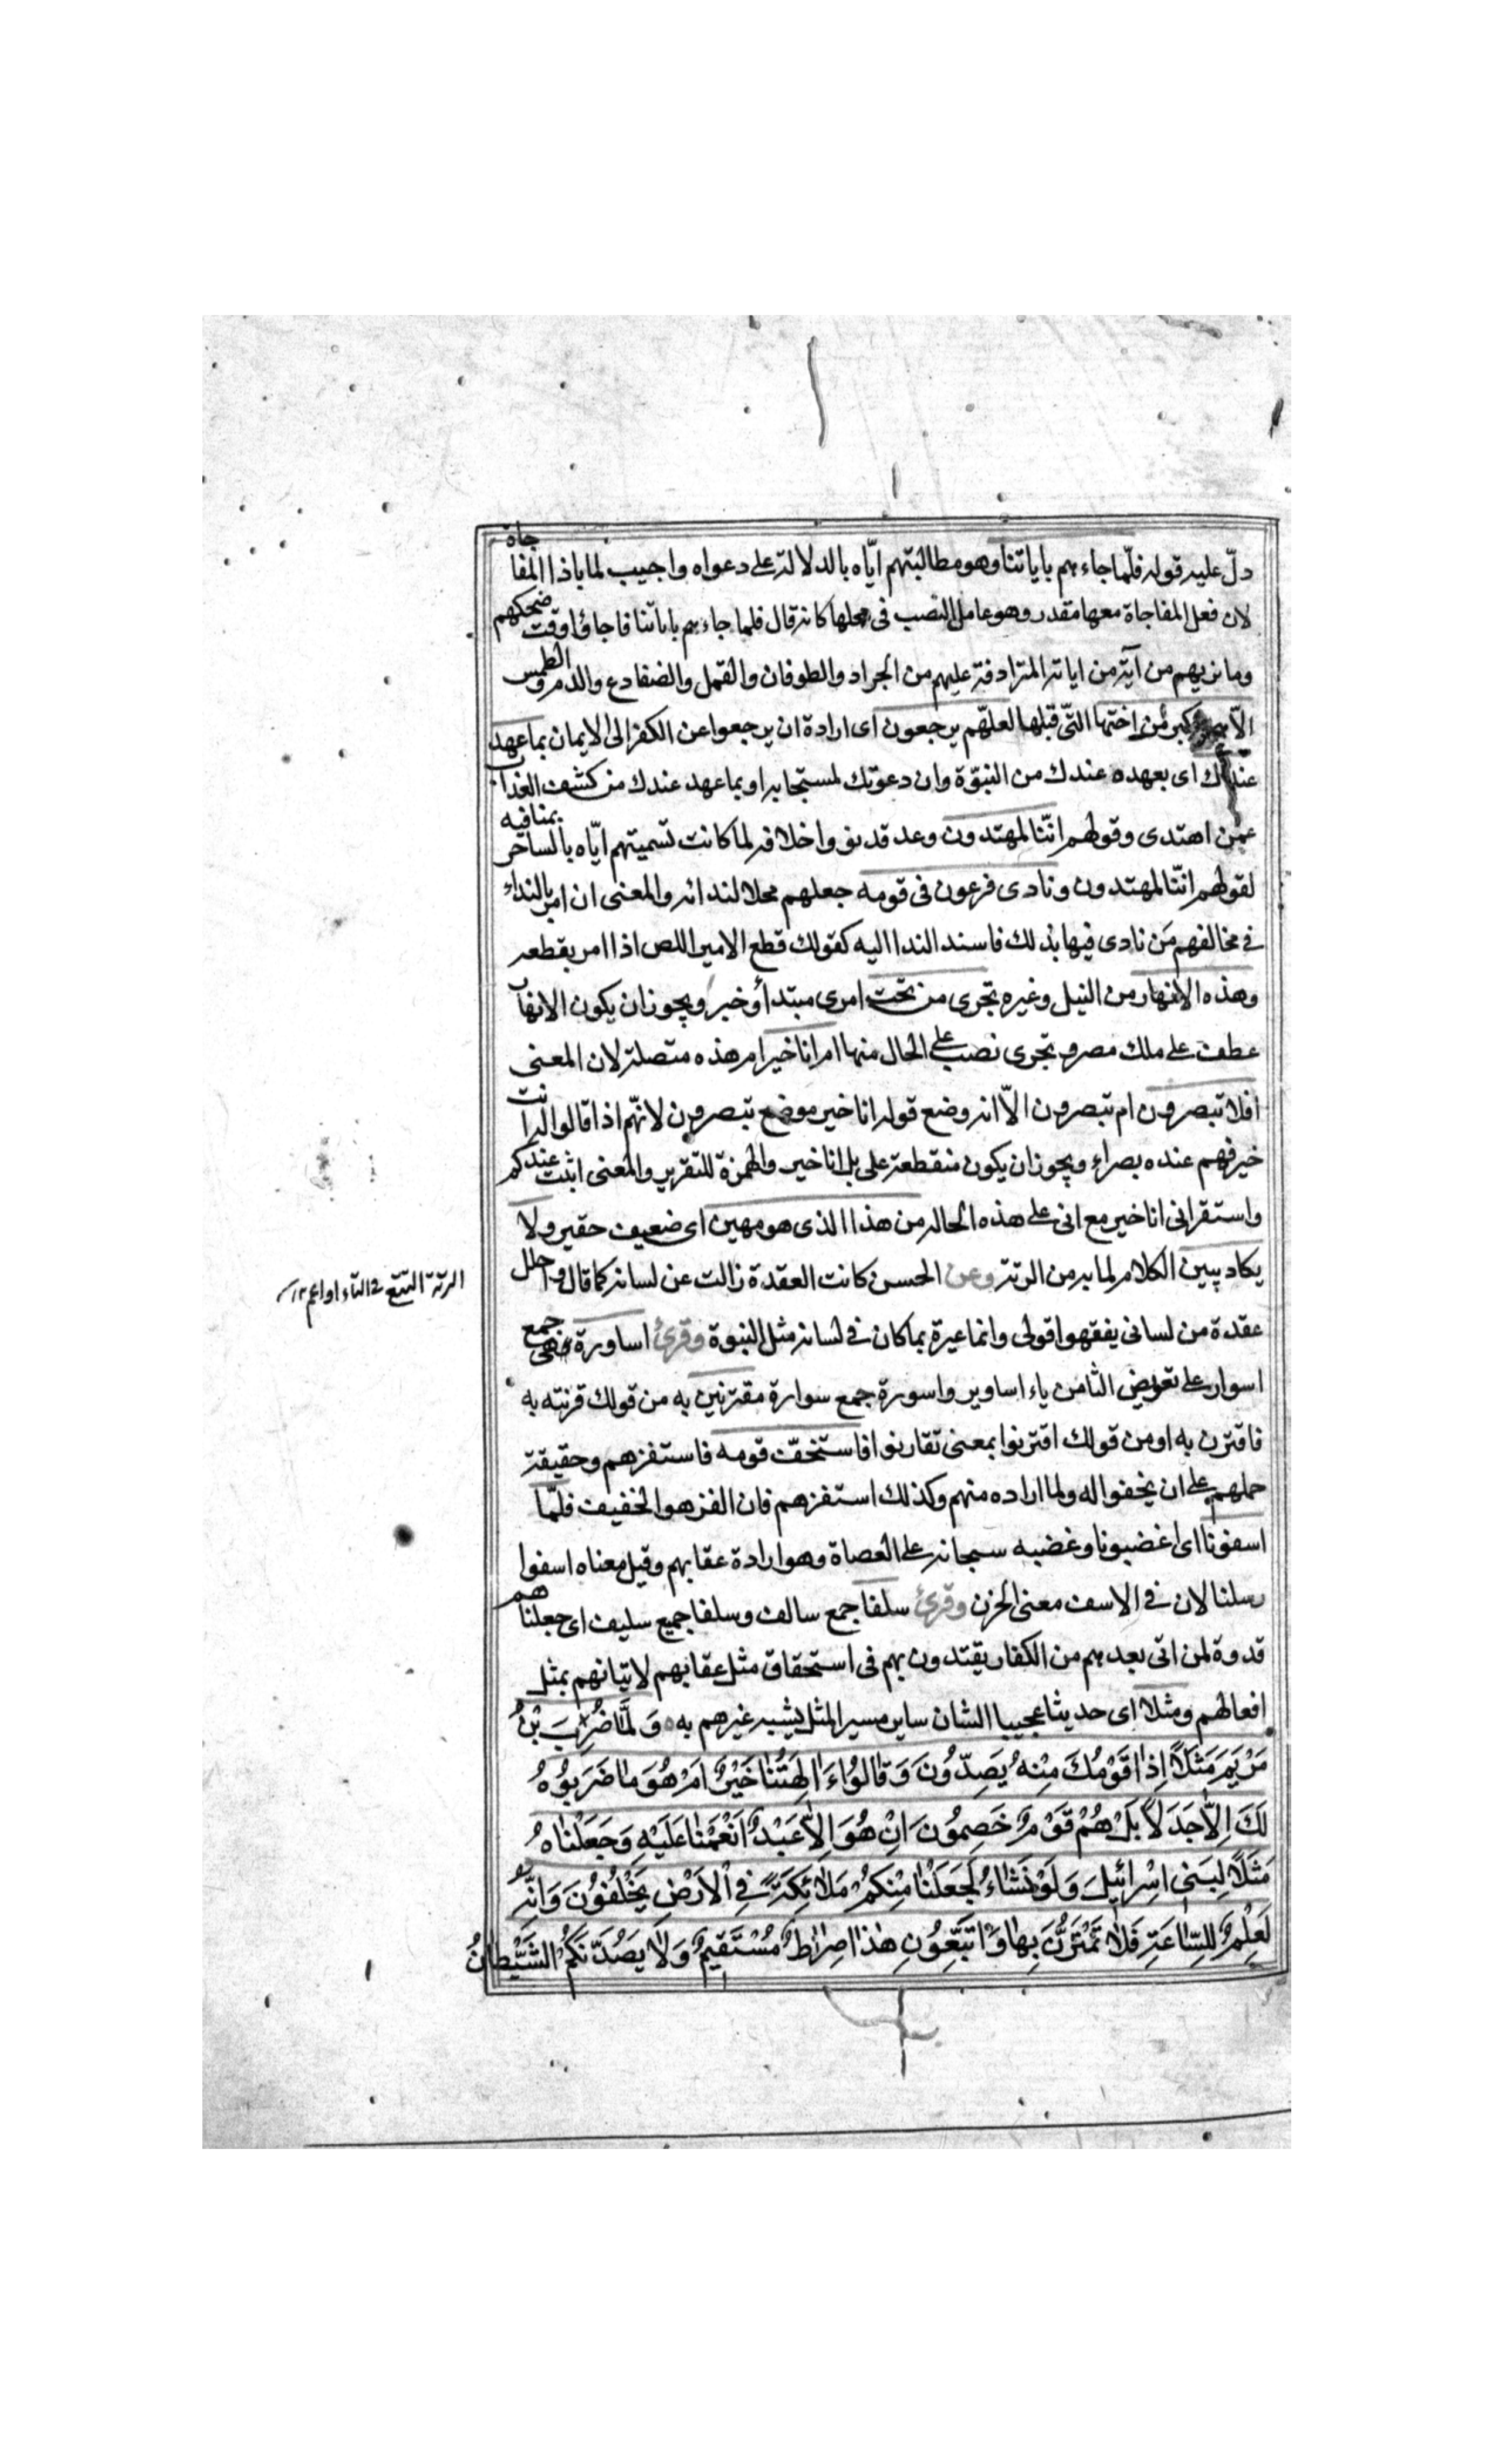 دلّ عليه قوله فلمّا جاءهم باياتنا وهو مطالبتهم ايّاه بالدلالة على دعواه واجيب لما باذا المفاجاة
لان فعل المفاجاة معها مقدر وهو عامل النصب فى محلها كانه قال فلما جاءهم باياتنا فاجاؤا وقت ضحكهم
وما نريهم من آية من اياته المترادفة عليهم من الجراد والطوفان والقمل والضفادع والدم والطمس
الّا هى اكبر من اختها التى قبلها لعلّهم يرجعون اى ارادة ان يرجعوا عن الكفر الى الايمان بما عهد
عندك اى بعهده عندك من النبوّة وان دعوتك لمستجابه او بما عهد عندك من كشف العذاب
عمن اهتدى وقولهم انّنا لمهتدون وعد قد نووا خلافه لما كانت تسميتهم ايّاه بالساحر بمنافيه
لقولهم انّنا لمهتدون ونادى فرعون فى قومه جعلهم محلا لندائه والمعنى ان امر بالنداء
فى مخالفهم مَن نادى فيها بذلك فاسند الندا اليه كقولك قطع الامير اللص اذا امر بقطعه
وهذه الانهار من النيل وغيره تجرى من تحت امرى مبتدأ وخبر ويجوز ان يكون الانهار
عطف على ملك مصر و تجرى نصب على الحال منها ام انا خير ام هذه متصلة لان المعنى
افلا تبصرون ام تبصرون الّا انه وضع قوله انا خير موضع تبصرون لانهّم اذا قالوا له انت
خير فهم عنده بصراء ويجوز ان يكون منقطعة على بل انا خير والهمزة للتقرير والمعنى اثبت عندكم
واستقر انى انا خير مع انى على هذه الحاله من هذا الذى هو مهين اى ضعيف حقير ولا
يكاد يبين الكلام لما به من الرتة وعن الحسن كانت العقدة زالت عن لسانه كما قال واحلل
الرتة التتع فى التاء او اعم ١٢
عقدة من لسانى يفقهوا قولى وانما عيره بما كان فى لسانه مثل النبوة وقرئ اساورة فهى جمع
اسوار على تعويض التا من ياء اساوير واسورة جمع سوارة مقترنين به من قولك قرنته به
فاقترن به او من قولك اقترنوا بمعنى تقارنوا فاستخفّ قومه فاستفزهم وحقيقة
حملهم على ان يخفوا له ولما اراده منهم وكذلك استفزهم فان الفز هو الخفيف فلمّا
اسفونا اى اغضبونا وغضبه سبحانه على العصاة وهو ارادة عقابهم وقيل معناه اسفوا
رسلنا لان فى الاسف معنى الحزن وقرئ سلفا جمع سالف وسلفا جميع سليف اى جعلناهم
قدوة لمن اتى بعدهم من الكفار يقتدون بهم فى استحقاق مثل عقابهم لاتيانهم بمثل
افعالهم ومثلا اى حديثا عجيبا الشان ساير مسير المثل يشبه غيرهم به وَلَمَّا ضُرِبَ بْنُ
مَرْيَمَ مَثَلًا اِذَا قَوْمُكَ مِنْهُ يَصِدُّونَ وَقَالُوا ءَالِهَتُنَا خَيْرٌ اَمْ هُوَ مَا ضَرَبُوُهُ
لَكَ اِلَّا جَدَلًا بَلْ هُمْ قَوْمٌ خَصِمُونَ اِنْ هُوَ اِلَّا عَبْدٌ اَنْعَمْنَا عَلَيْهِ وَجَعَلْنَاهُ
مَثَلًا لِبَنِى اِسْرَائِيلَ وَلَوْ نَشَاءُ لَجَعَلْنَا مِنْكُمْ مَلَائِكَةً فِى الْاَرْضِ يَخْلُفُونَ وَاِنَّهُ
لَعِلْمٌ لِلسَّاعَةِ فَلَا تَمْتَرُنَّ بِهَا وَاتَّبِعُونِ هٰذَا صِرَاطٌ مُسْتَقِيمٌ وَلَا يَصُدَّنَّكُمُ الشَّيْطَانُ